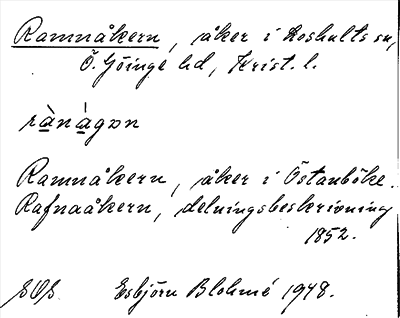 Ramnåkern, åker i Loshults sn,
Ö. Göinge hd, Krist. l.
rànágon
Ramnåkern, åker i Östanböke.
Rafnaåkern, delningsbeskrivning
1852.
Esbjörn Blohmé 1948.